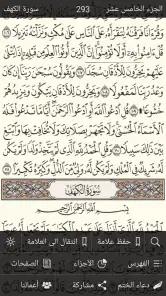 سورة الكهف 293 الجزء الخامس عشر
وَقُرْءَانًا فَرَقْنَٰهُ لِتَقْرَأَهُۥ عَلَى ٱلنَّاسِ عَلَىٰ مُكْثٍ وَنَزَّلْنَٰهُ تَنزِيلًا ١٠٦
قُلْ ءَامِنُوا۟ بِهِۦٓ أَوْ لَا تُؤْمِنُوٓا۟ إِنَّ ٱلَّذِينَ أُوتُوا۟ ٱلْعِلْمَ مِن قَبْلِهِۦٓ إِذَا يُتْلَىٰ
عَلَيْهِمْ يَخِرُّونَ لِلْأَذْقَانِ سُجَّدًا ١٠٧ وَيَقُولُونَ سُبْحَٰنَ رَبِّنَآ إِن كَانَ
وَعْدُ رَبِّنَا لَمَفْعُولًا ١٠٨ وَيَخِرُّونَ لِلْأَذْقَانِ يَبْكُونَ وَيَزِيدُهُمْ
خُشُوعًا ١٠٩ قُلِ ٱدْعُوا۟ ٱللَّهَ أَوِ ٱدْعُوا۟ ٱلرَّحْمَٰنَ أَيًّا مَّا تَدْعُوا۟ فَلَهُ
ٱلْأَسْمَآءُ ٱلْحُسْنَىٰ وَلَا تَجْهَرْ بِصَلَاتِكَ وَلَا تُخَافِتْ بِهَا وَٱبْتَغِ
بَيْنَ ذَٰلِكَ سَبِيلًا ١١٠ وَقُلِ ٱلْحَمْدُ لِلَّهِ ٱلَّذِى لَمْ يَتَّخِذْ وَلَدًا
وَلَمْ يَكُن لَّهُۥ شَرِيكٌ فِى ٱلْمُلْكِ وَلَمْ يَكُن لَّهُۥ وَلِىٌّ مِّنَ ٱلذُّلِّ وَكَبِّرْهُ تَكْبِيرًا ١١١
سُورَةُ الكَهْفِ
بِسْمِ ٱللَّهِ ٱلرَّحْمَٰنِ ٱلرَّحِيمِ
حفظ علامة انتقال الى العلامة
الفهرس الأجزاء الصفحات
دعاء الختم مشاركة أعمالنا